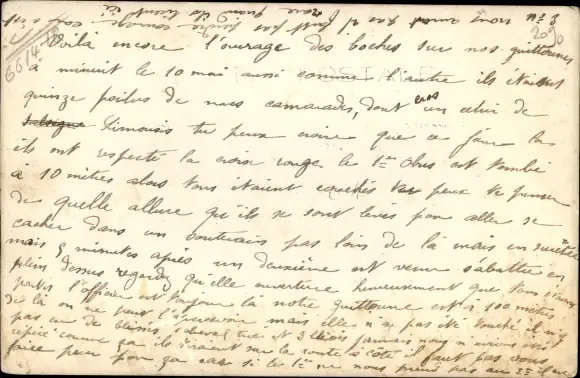 Voilà encore l'ouvrage des boches sur nos guittounes
à minuit le 10 mai aussi comme l'autre ils étaient
quinze poilus de nos camarades, dont un celui de
Limousis tu peux croire que ce jour la
ils ont respecté la croix rouge le 1er Obus est tombé
à 10 mètres alors tous étaient couchés tu peux te penser
de quelle allure qu'ils se sont levés pour aller se
cacher dans un souterrain pas loin de là mais en
mais 3 minutes après un deuxième est venu s'abattre en
plein dessus regardez qu'elle ouverture heureusement que tous étaient
partis l'officier est toujour là notre guittoune est à 100 mètres
de là on ne peut l'apercevoir mais elle n'a pas été touché il n'y
pas eu de blessés 1 cheval tué et 3 blessés jamais nous n'avions
comme ça ils tiraient sur la route à côté il faut pas vous
faire peur pour ça car si le 1er ne nous prend pas au 2e il ne